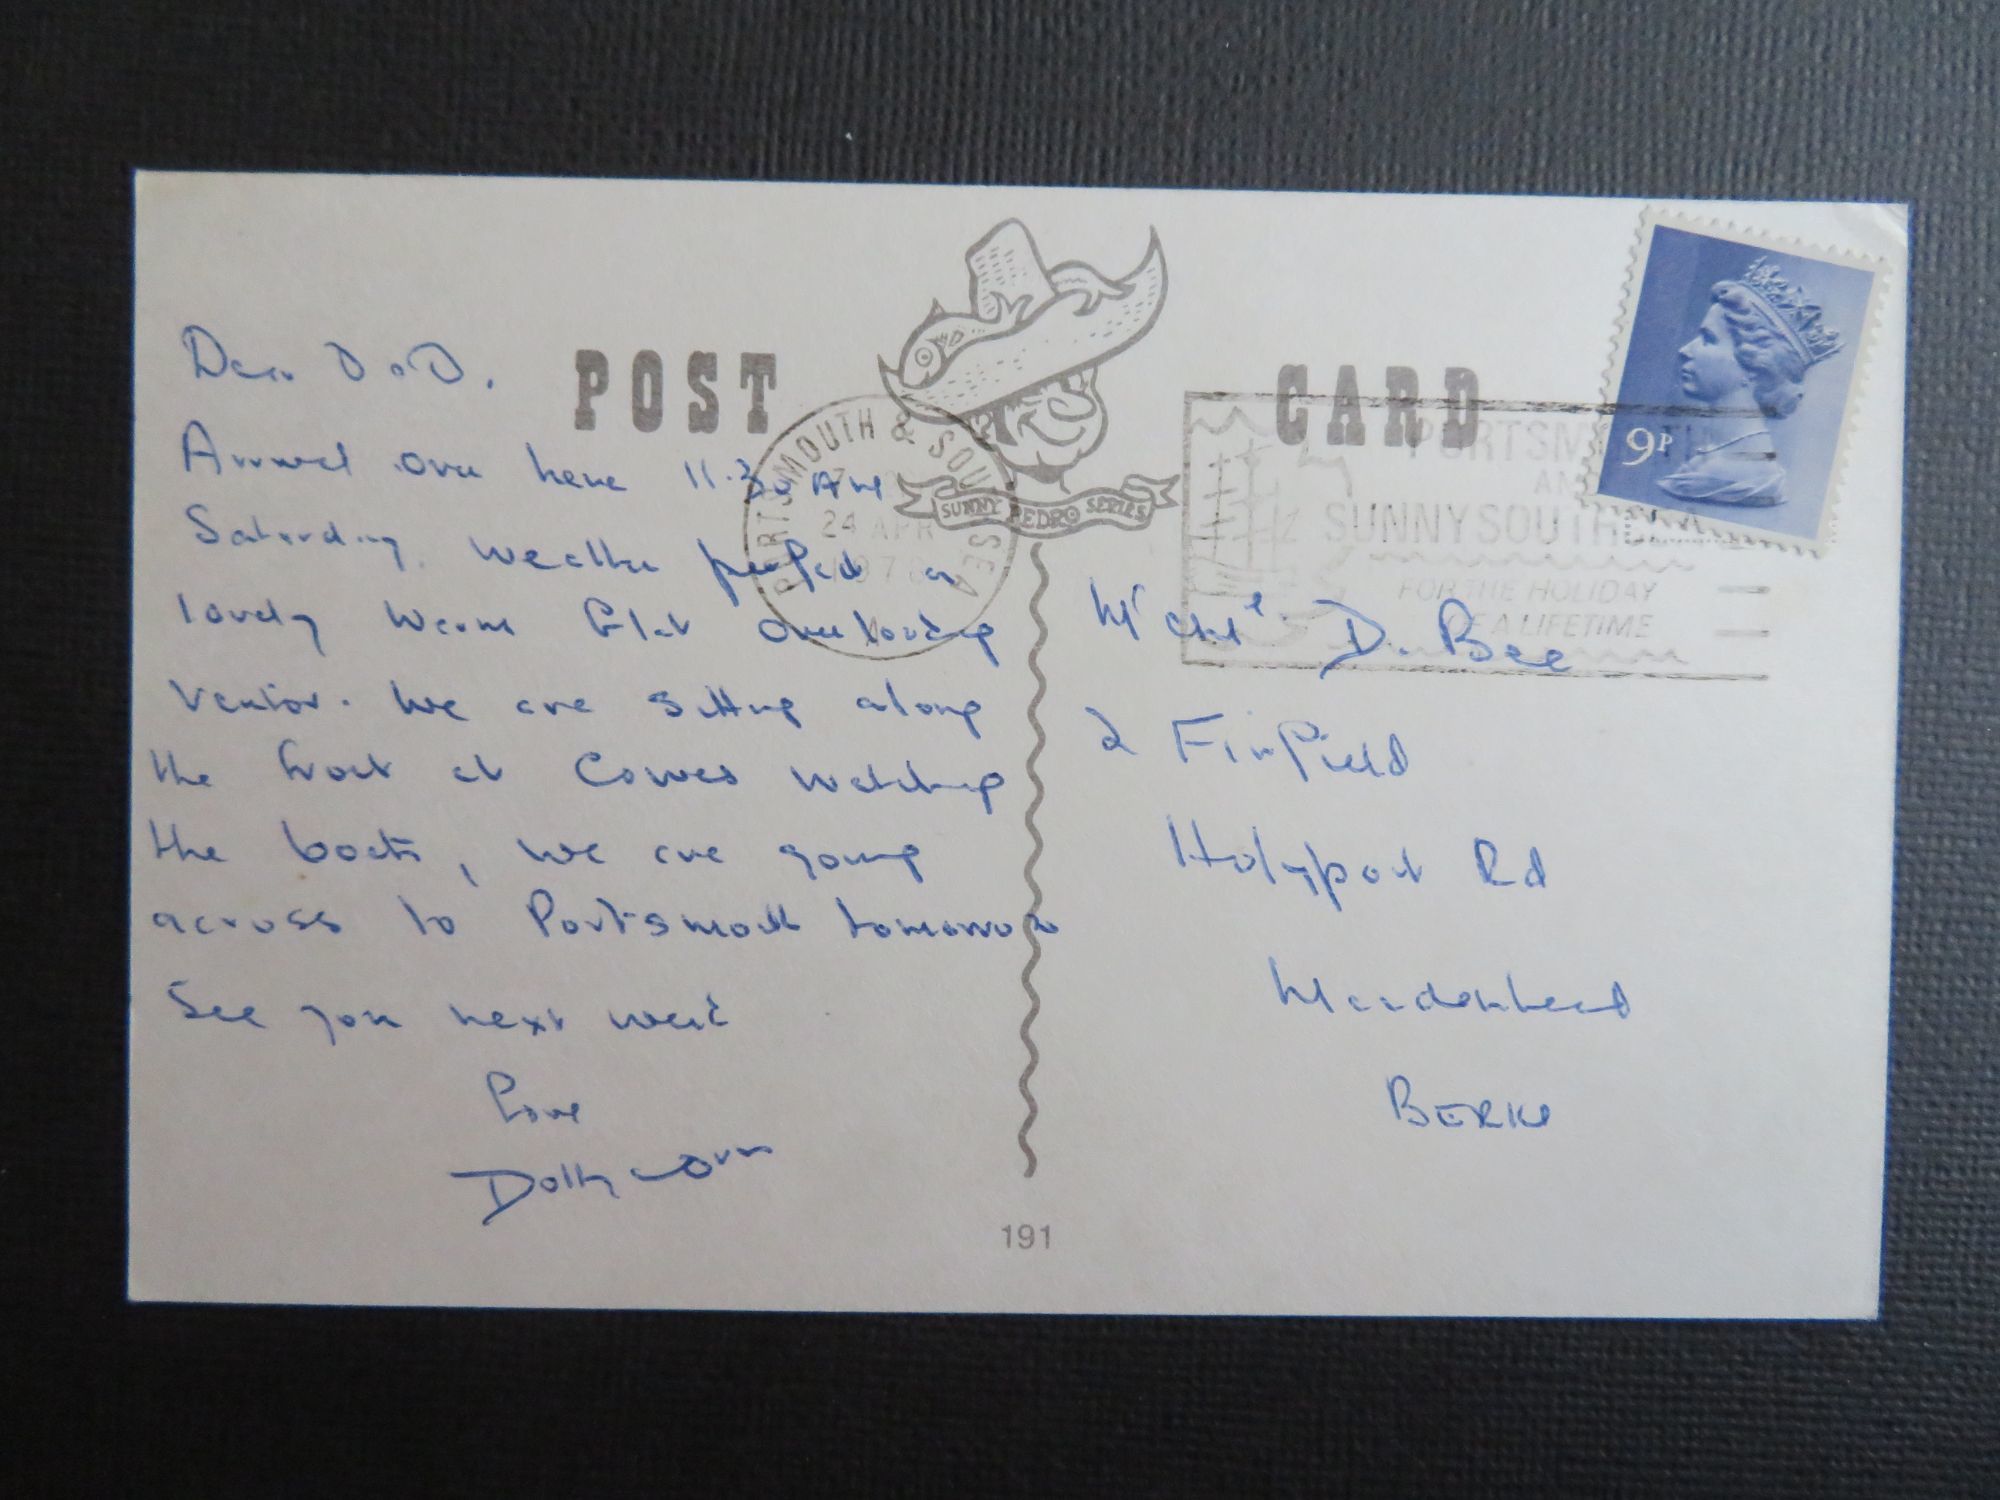 POST CARD
SUNNY PEDRO SERIES
PORTSMOUTH & SOUTHSEA
24 APR
197
PORTSM
AN
SUNNY SOUTHSEA
FOR THE HOLIDAY
OF A LIFETIME
9P
Dear D & D.
Arrived over here 11.30 AM
Saturday. Weather perfect a
lovely warm flat overlooking
Ventnor. We are sitting along
the front at Cowes watching
the boats, we are going
across to Portsmouth tomorrow
See you next week
Love
Dolly
Mr D. Bee
2 Firfield
Holyport Rd
Maidenhead
BERKS
191